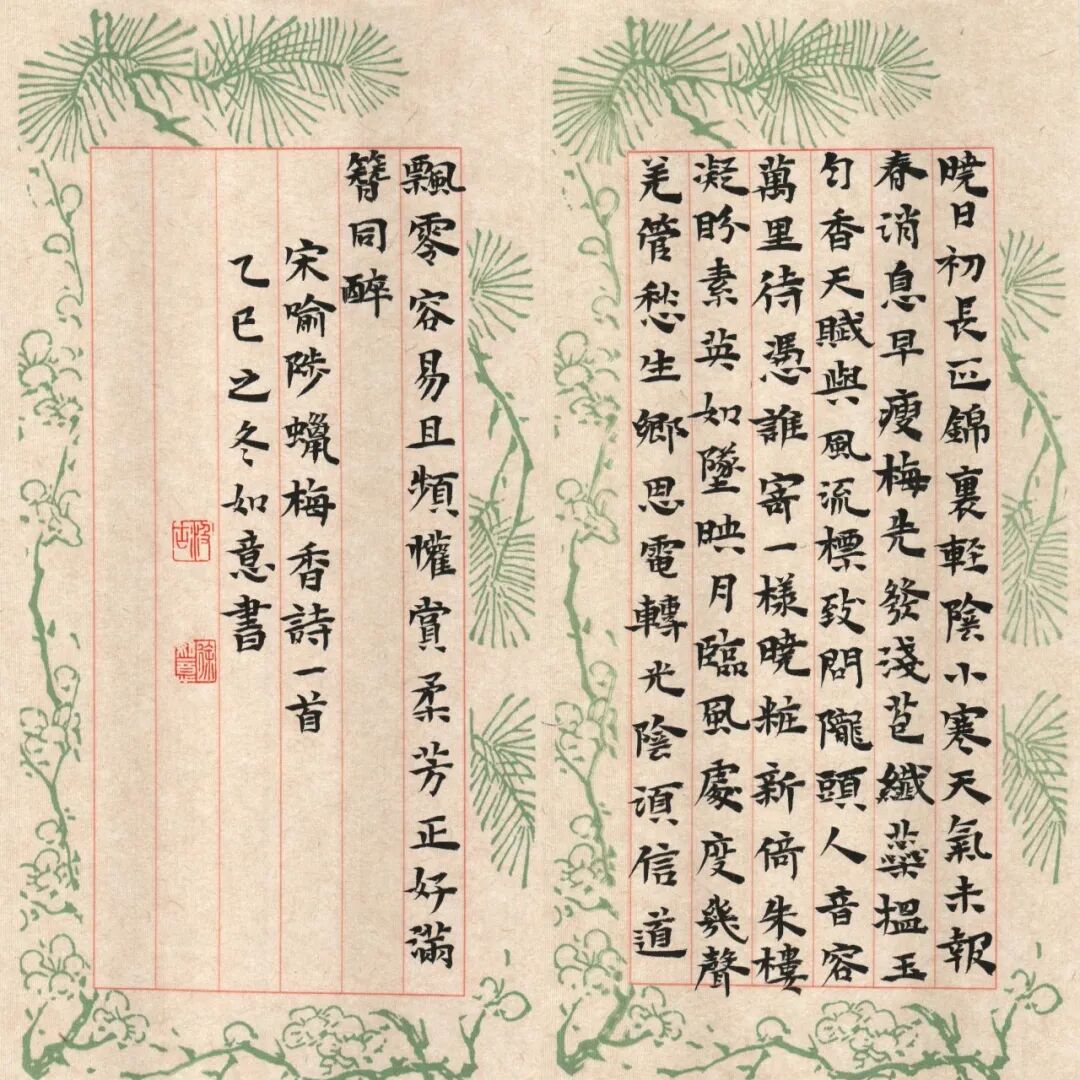 暁日初長正錦裏軽陰小寒天氣未報
春消息早瘦梅先發淺苞纖蘂搵玉
匀香天賦與風流標致問隴頭人音容
萬里待憑誰寄一樣暁粧新倚朱樓
凝盼素英如墜映月臨風處度幾聲
羌管愁生鄉思電轉光陰須信道
飄零容易且頻懽賞柔芳正好滿
簪同醉
宋喻陟蠟梅香詩一首
乙巳之冬如意書